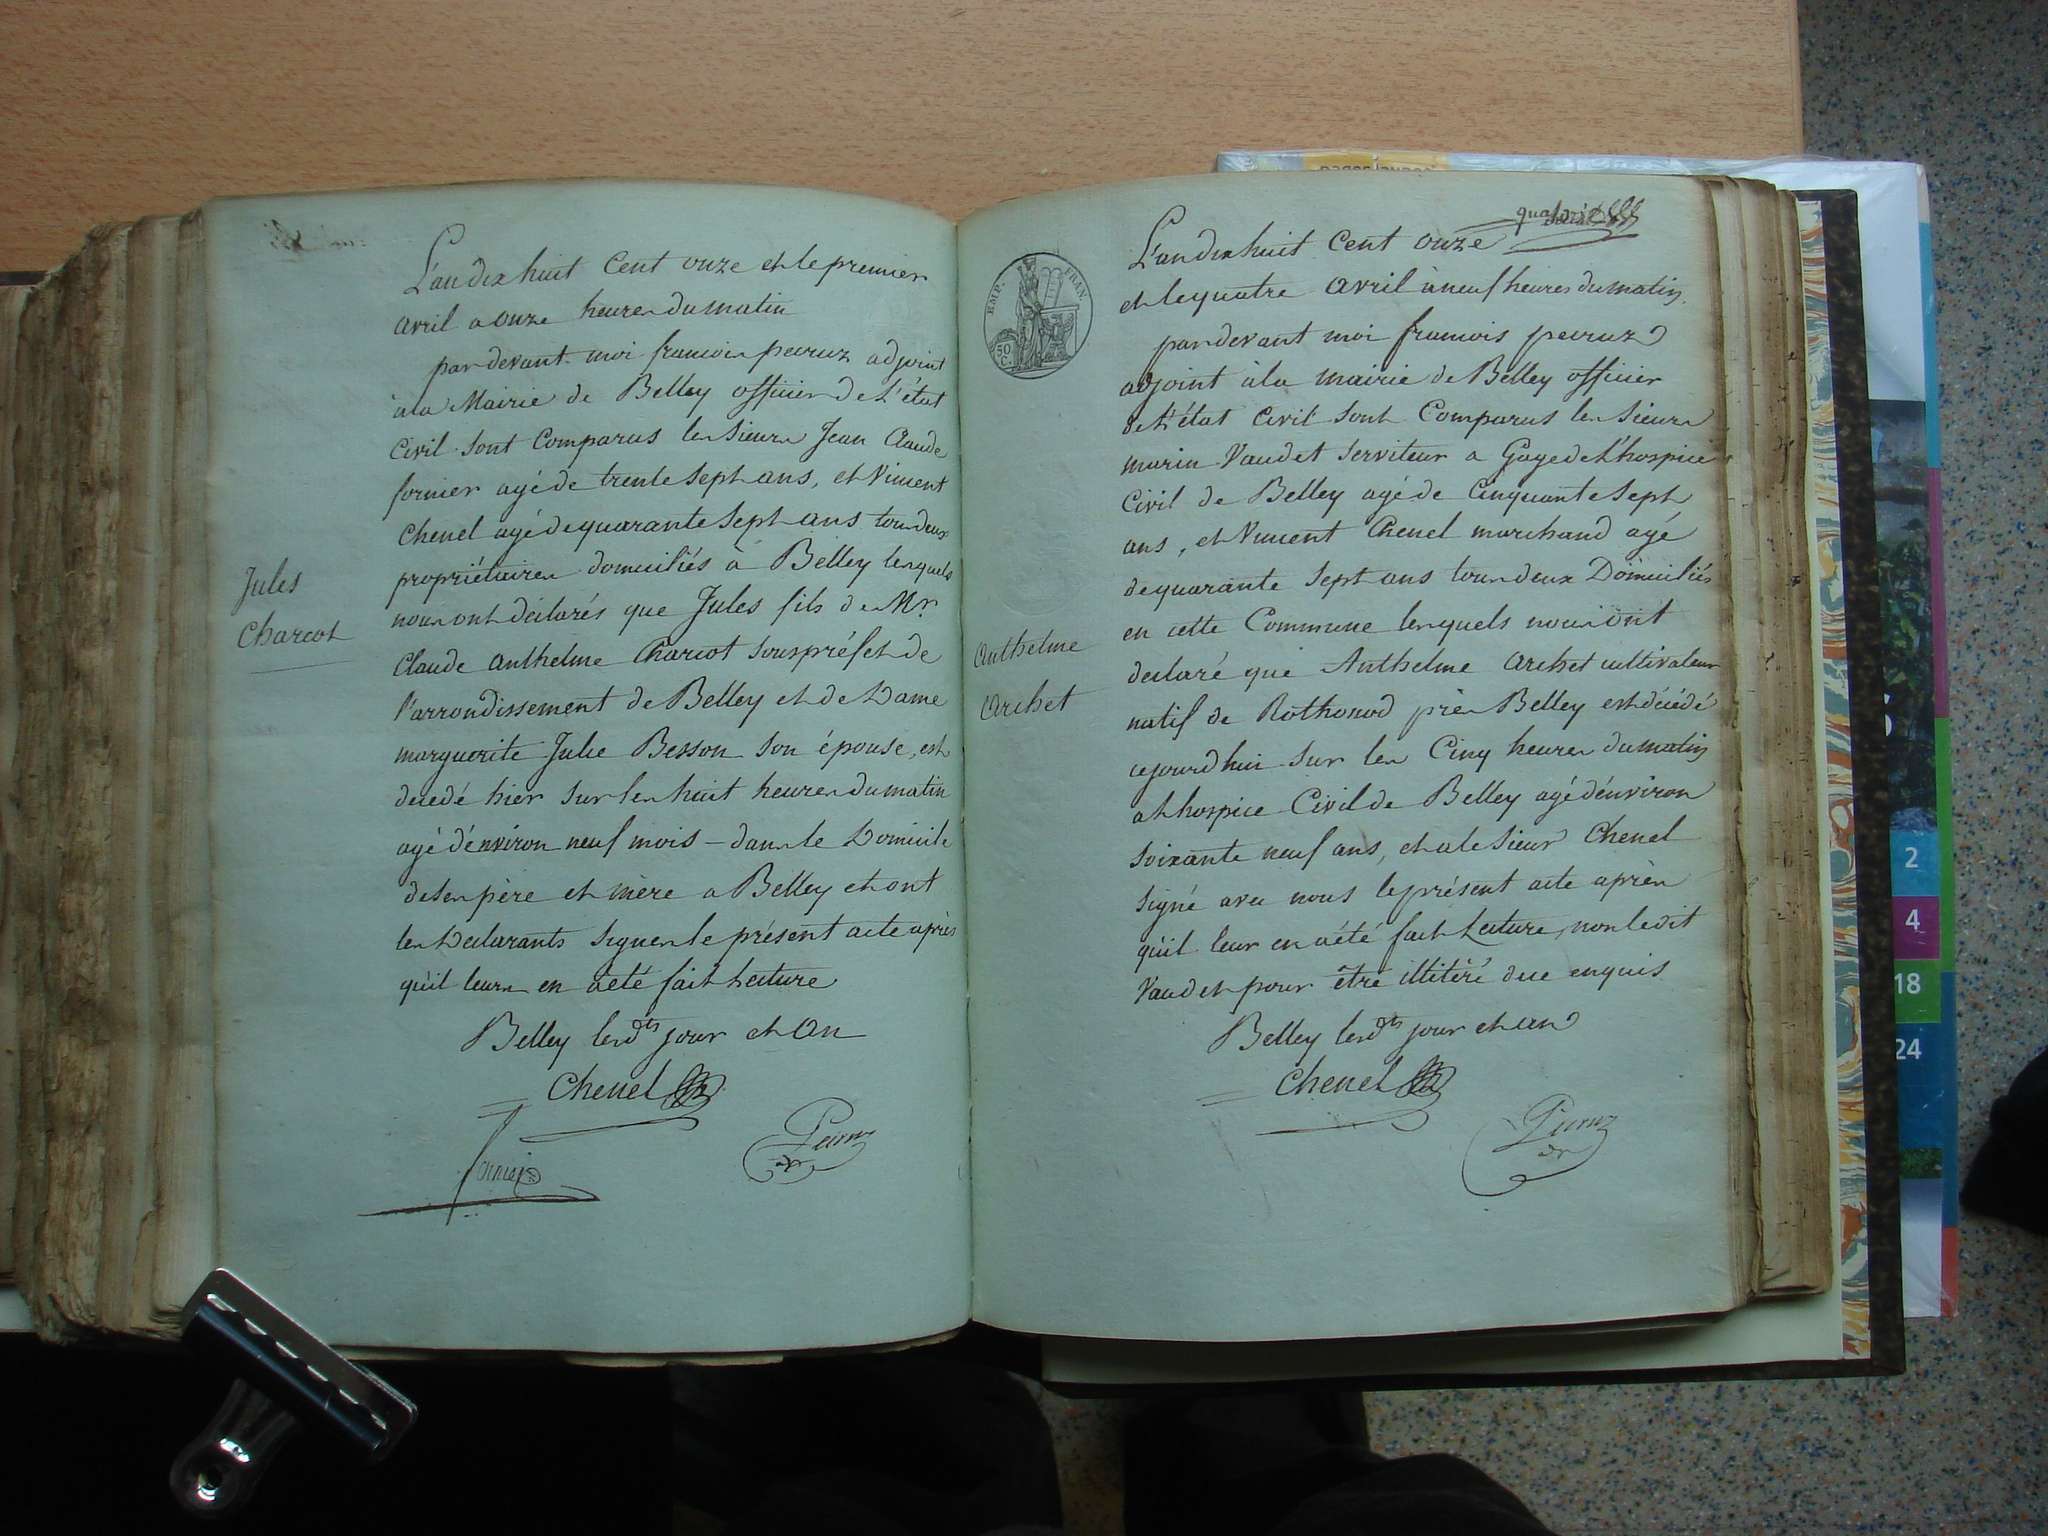 L'an dix huit cent onze et le premier
avril a onze heures du matin
pardevant moi francois peyruz adjoint
à la Mairie de Belley officier de L'état
Civil sont Comparus les sieurs Jean Claude
fornier agé de trente sept ans, et Vincent
Chenel agé de quarante sept ans tous deux
propriétaires domiciliés à Belley lesquels
nous ont déclarés que Jules fils de Mr.
Claude anthelme Charcot souspréfet de
l'arrondissement de Belley et de Dame
marguerite Julie Besson son épouse, est
décedé hier sur les huit heures du matin
agé d'énviron neuf mois - dans le Domicile
de ses père et mère a Belley et ont
les Déclarants signer le présent acte après
qu'il leurs en a été fait Lecture
Belley les dts jour et an
Chenel
Jules
Charcot
L'an dix huit cent onze
et le quatre avril à neuf heures du matin
pardevant moi francois peyruz
adjoint à la mairie de Belley officier
de l'état civil sont Comparus les sieurs
marin Vaudet serviteur a Gage de L'hospice
Civil de Belley agé de Cinquante sept
ans, et Vincent Chenel marchand agé
de quarante sept ans tous deux Domiciliés
en cette Commune lesquels nous ont
declaré que Anthelme Archet cultivateur
natif de Rothonod près Belley est décédé
cejourdhui sur les Cinq heures du matin
a Lhospice Civil de Belley agé d'énviron
soixante neuf ans, et a le sieur Chenel
signé avec nous le présent acte après
qu'il leur en a été fait Lecture, non ledit
Vaudet pour être illitéré de ce enquis
Belley les dts jour et an
Chenel
EMP. FRAN.
50
C.
Anthelme
Archet
2
4
18
24